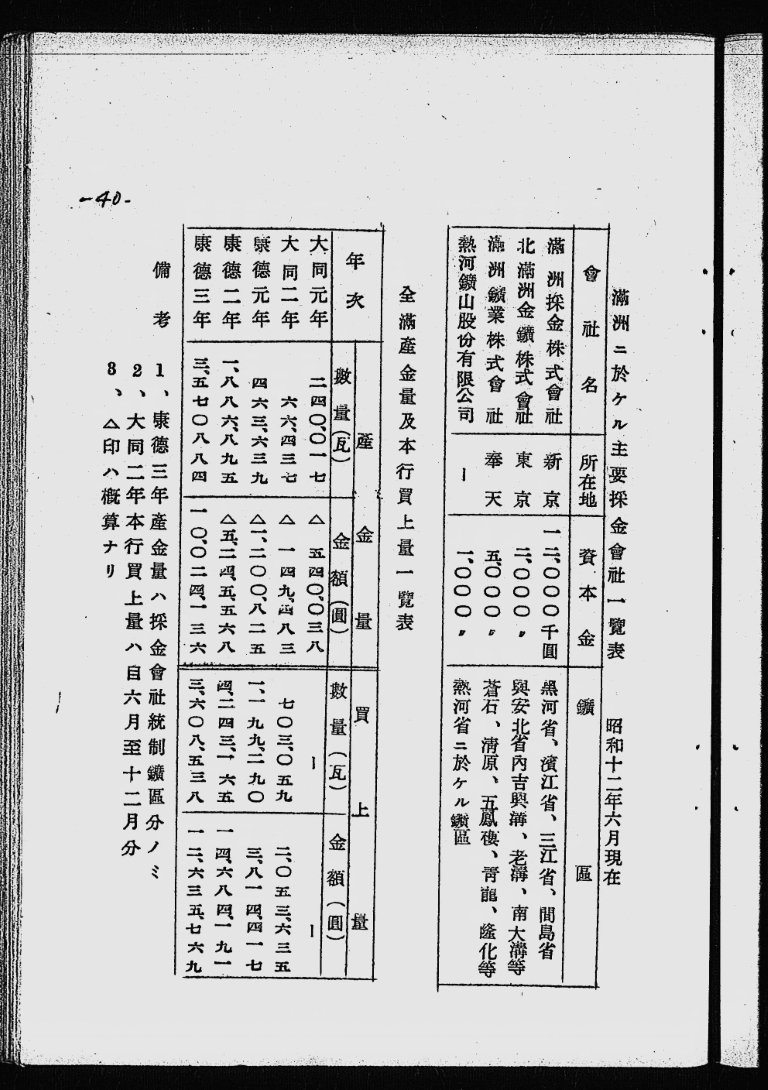 滿洲ニ於ケル主要採金會社一覽表　昭和十二年六月現在
會社名　所在地　資本金　鑛區
滿洲採金株式會社　新京　一二、〇〇〇千圓　黑河省、濱江省、三江省、間島省
北滿洲金鑛株式會社　東京　二、〇〇〇〃　興安北省內吉興溝、老溝、南大溝等
滿洲鑛業株式會社　奉天　五、〇〇〇〃　蒼石、淸原、五鳳樓、靑龍、隆化等
熱河鑛山股份有限公司　ー　一、〇〇〇〃　熱河省ニ於ケル鑛區
全滿產金量及本行買上量一覽表
年次　產金量　買上量
數量(瓦)　金額(圓)　數量(瓦)　金額(圓)
大同元年　二四〇、〇一七　△五四〇、〇三八　ー　ー
大同二年　六六、四三七　△一四九、四八三　七〇三、〇五九　二、〇五三、六三五
康德元年　四六三、六三九　△一、二〇〇、八二五　一、一九九、二九〇　三、八一四、四一七
康德二年　一、八八六、八九五　△五、二四五、五六八　四、二四三、一六五　一四、六八四、一九一
康德三年　三、五七〇、八八四　一〇、〇二四、一三六　三、六〇八、五三八　一二、六三五、七六九
備考　1、康德三年產金量ハ採金會社統制鑛區分ノミ
2、大同二年本行買上量ハ自六月至十二月分
3、△印ハ槪算ナリ
-40-